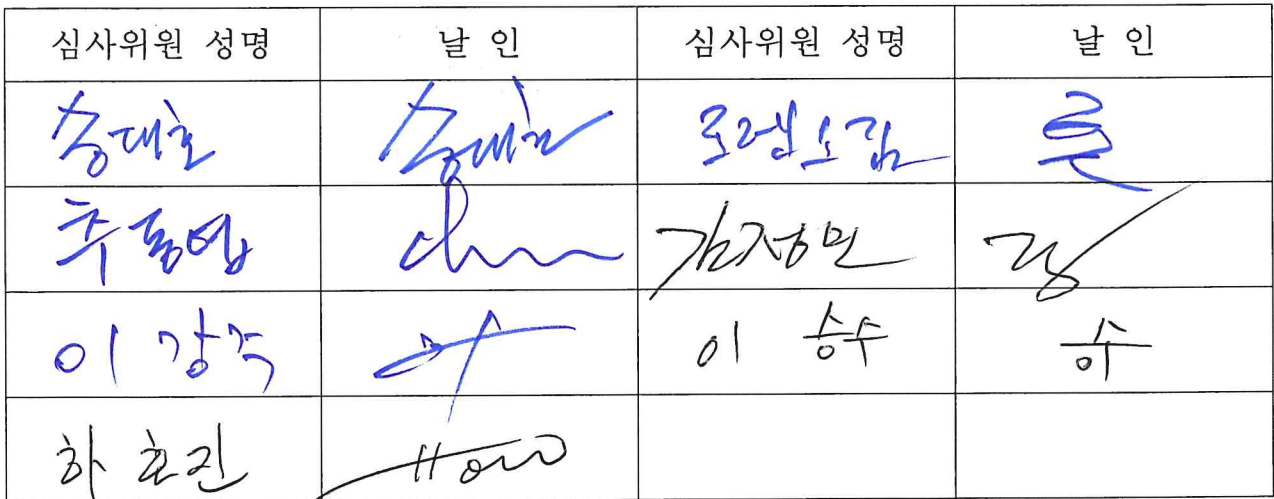 심사위원 성명 날 인 심사위원 성명 날 인
송대호 송대호 로렌소김
추동엽 김정민
이강주 이 승수 승
하호진